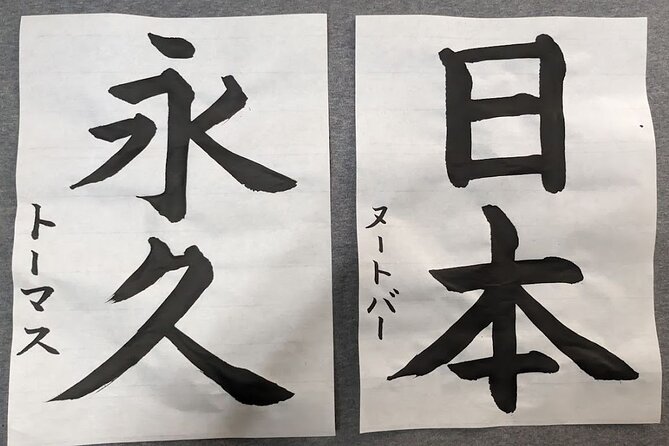 永久
トーマス
日本
ヌートバー